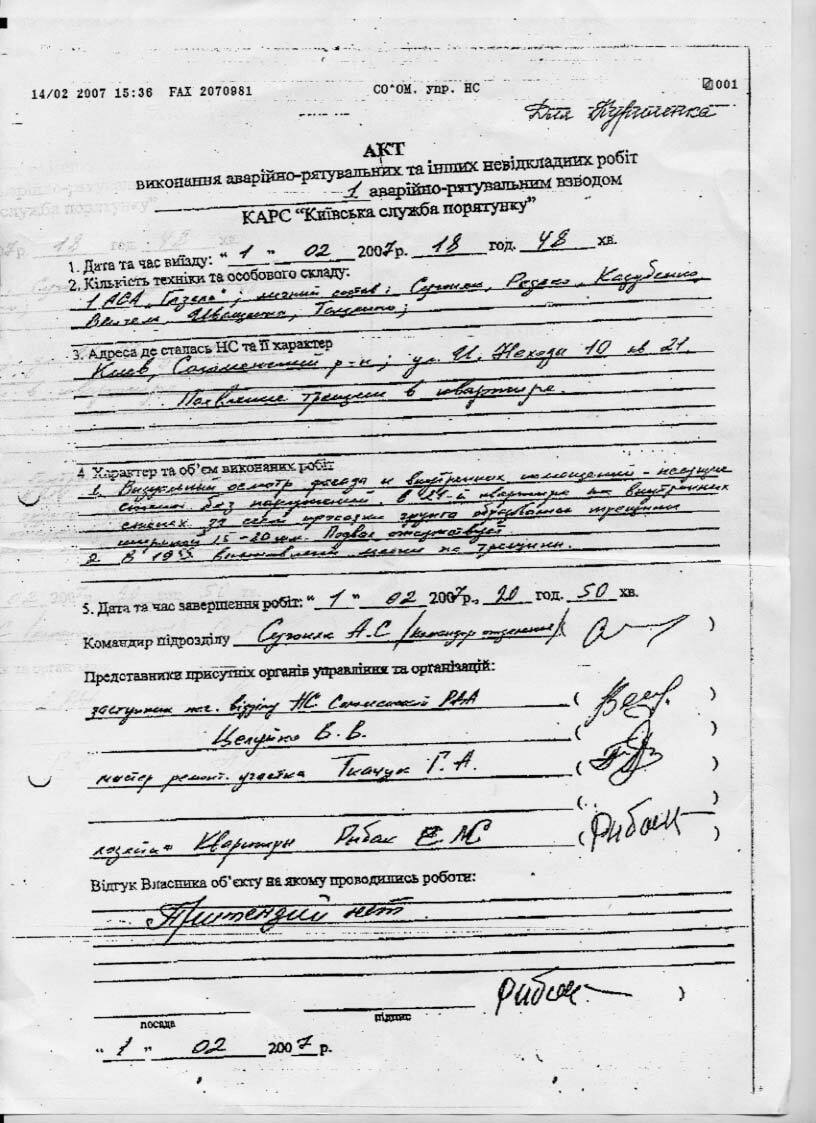 14/02 2007 15:36 FAX 2070981 СО^ОМ. упр. НС 001
Для
АКТ
виконання аварійно-рятувальних та інших невідкладних робіт
1 аварійно-рятувальним взводом
КАРС “Київська служба порятунку”
1. Дата та час виїзду: “ 1 ” 02 2007р. 18 год. 48 хв.
2. Кількість техніки та особового складу:
1 АСА „Газель“, личный состав:
3. Адреса де сталась НС та її характер
Киев, Соломенский р-н; ул. И. 10 кв 21.
Появление трещин в квартире.
4 Характер та об’єм виконаних робіт
1. Визуальный осмотр фасада и внутренних помещений - несущие
стены без нарушений. В 21-й квартире на внутренних
стенах за счет просадки грунта образовались трещины
шириной 15-20 мм. Подвал отсутствует.
2. В 1955 маяки на трещины.
5. Дата та час завершення робіт: “ 1 ” 02 2007р., 20 год. 50 хв.
Командир підрозділу А.С (командир отделения) ( )
Представники присутніх органів управління та організацій:
заступник нач. відділу НС Соломенской РДА (
Целуйко В. В. (
мастер ремонт. участка Ткачук Г. А. (
(
хозяйка Квартиры Рыбак (Рибак
Відгук Власника об’єкту на якому проводились роботи:
Притензий нет.
Рибак )
посада підпис
“ 1 ” 02 2007 р.